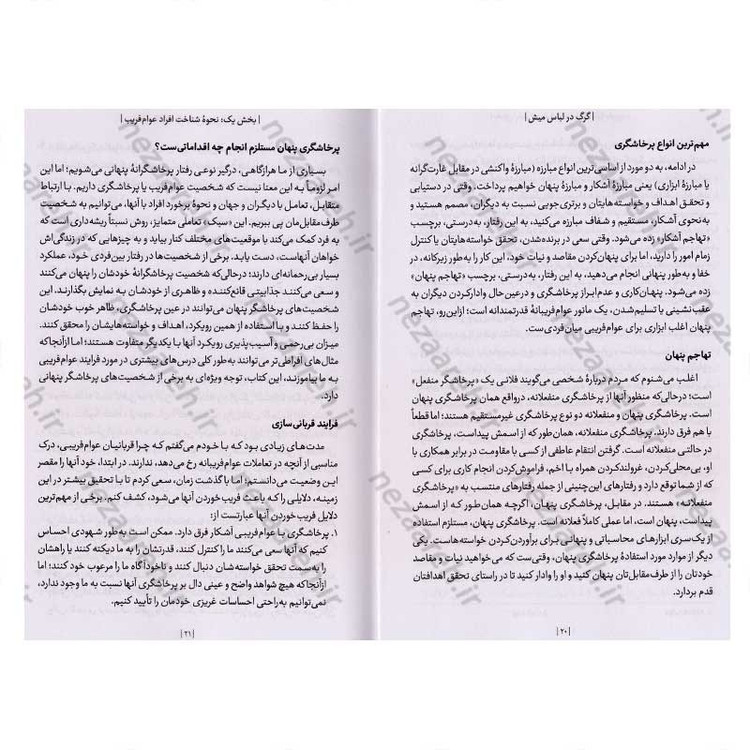 | گرگ در لباس میش |
مهم‌ترین انواع پرخاشگری
در ادامه، به دو مورد از اساسی‌ترین انواع مبارزه (مبارزهٔ واکنشی در مقابل غارت‌گرانه
یا مبارزهٔ ابزاری) یعنی مبارزهٔ آشکار و مبارزهٔ پنهان خواهیم پرداخت. وقتی در دستیابی
و تحقق اهداف و خواسته‌هایتان و برتری‌جویی نسبت به دیگران، مصمم هستید و
به‌نحوی آشکار، مستقیم و شفاف مبارزه می‌کنید، به این رفتار، به‌درستی، برچسب
«تهاجم آشکار» زده می‌شود. وقتی سعی در برنده‌شدن، تحقق خواسته‌هایتان یا کنترل
زمام امور را دارید، اما برای پنهان‌کردن مقاصد و نیات خود، این کار را به‌طور زیرکانه، در
خفا و به‌طور پنهانی انجام می‌دهید، به این رفتار، به‌درستی، برچسب «تهاجم پنهان»
زده می‌شود. پنهان‌کاری و عدم‌ابراز پرخاشگری و درعین‌حال وادارکردن دیگران به
عقب‌نشینی یا تسلیم‌شدن، یک مانور عوام‌فریبانهٔ قدرتمندانه است؛ ازاین‌رو، تهاجم
پنهان اغلب ابزاری برای عوام‌فریبی میان‌فردی‌ست.
تهاجم پنهان
اغلب می‌شنوم که مردم دربارهٔ شخصی می‌گویند فلانی یک «پرخاشگر منفعل»
است؛ درحالی‌که منظور آنها از پرخاشگری منفعلانه، درواقع همان پرخاشگری پنهان
است. پرخاشگری پنهان و منفعلانه دو نوع پرخاشگری غیرمستقیم هستند؛ اما قطعاً
با هم فرق دارند. پرخاشگری منفعلانه، همان‌طور که از اسمش پیداست، پرخاشگری
در حالتی منفعلانه است. گرفتن انتقام عاطفی از کسی با مقاومت در برابر همکاری با
او، بی‌محلی‌کردن، غرولندکردن همراه با اخم، فراموش‌کردن انجام کاری برای کسی
که از شما توقع دارد و رفتارهای این‌چنینی از جمله رفتارهای منتسب به «پرخاشگری
منفعلانه» هستند. در مقابل، پرخاشگری پنهان، اگرچه همان طور که از اسمش
پیداست، پنهان است، اما عملی کاملاً فعالانه است. پرخاشگری پنهان، مستلزم استفاده
از یک سری ابزارهای محاسباتی و پنهانی برای برآوردن‌کردن خواسته‌هاست. یکی
دیگر از موارد مورد استفادهٔ پرخاشگری پنهان، وقتی‌ست که می‌خواهید نیات و مقاصد
خودتان را از طرف مقابل‌تان پنهان کنید و او را وادار کنید تا در راستای تحقق اهدافتان
قدم بردارد.
| ۲۰ |
| بخش یک: نحوهٔ شناخت افراد عوام‌فریب |
پرخاشگری پنهان مستلزم انجام چه اقداماتی‌ست؟
بسیاری از ما هرازگاهی، درگیر نوعی رفتار پرخاشگرانهٔ پنهانی می‌شویم؛ اما این
امر لزوماً به این معنا نیست که شخصیت عوام‌فریب یا پرخاشگری داریم. با ارتباط
متقابل، تعامل با دیگران و جهان و نحوهٔ برخورد افراد با آنها، می‌توانیم به شخصیت
طرف مقابل‌مان پی ببریم. این «سبک» تعاملی متمایز، روش نسبتاً ریشه‌داری است که
به فرد کمک می‌کند با موقعیت‌های مختلف کنار بیاید و به چیزهایی که در زندگی‌اش
خواهان آنهاست، دست یابد. برخی از شخصیت‌ها در رفتار بین‌فردی خود، عملکرد
بسیار بی‌رحمانه‌ای دارند؛ درحالی‌که شخصیت پرخاشگرانهٔ خودشان را پنهان می‌کنند
و سعی می‌کنند جذابیتی قانع‌کننده و ظاهری از خودشان به نمایش بگذارند. این
شخصیت‌های پرخاشگر پنهان می‌توانند در عین پرخاشگری، ظاهر خوب خودشان
را حفظ کنند و با استفاده از همین رویکرد، اهداف و خواسته‌هایشان را محقق کنند.
میزان بی‌رحمی و آسیب‌پذیری رویکرد آنها با یکدیگر متفاوت هستند؛ اما ازآنجاکه
مثال‌های افراطی‌تر می‌توانند به‌طور کلی درس‌های بیشتری در مورد فرایند عوام‌فریبی
به ما بیاموزند، این کتاب، توجه ویژه‌ای به برخی از شخصیت‌های پرخاشگر پنهانی
دارد.
فرایند قربانی‌سازی
مدت‌های زیادی بود که با خودم می‌گفتم که چرا قربانیان عوام‌فریبی، درک
مناسبی از آنچه در تعاملات عوام‌فریبانه رخ می‌دهد، ندارند. در ابتدا، خود آنها را مقصر
این وضعیت می‌دانستم؛ اما با گذشت زمان، سعی کردم تا با تحقیق بیشتر در این
زمینه، دلایلی را که باعث فریب‌خوردن آنها می‌شود، کشف کنم. برخی از مهم‌ترین
دلایل فریب‌خوردن آنها عبارتست از:
۱. پرخاشگری با عوام‌فریبی آشکار فرق دارد. ممکن است به‌طور شهودی احساس
کنیم که آنها سعی می‌کنند ما را کنترل کنند، قدرتشان را به ما دیکته کنند یا راهشان
را به‌سمت تحقق خواسته‌شان دنبال کنند و ناخودآگاه ما را مرعوب خود کنند؛ اما
ازآنجاکه هیچ شواهد واضح و عینی دال بر پرخاشگری آنها نسبت به ما وجود ندارد،
نمی‌توانیم به‌راحتی احساسات غریزی خودمان را تأیید کنیم.
| ۲۱ |
nezaarah.ir